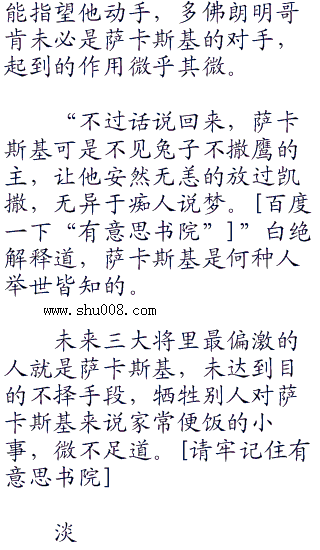 能指望他动手，多佛朗明哥
肯未必是萨卡斯基的对手，
起到的作用微乎其微。
“不过话说回来，萨卡
斯基可是不见兔子不撒鹰的
主，让他安然无恙的放过凯
撒，无异于痴人说梦。[百度
一下“有意思书院”]”白绝
解释道，萨卡斯基是何种人
举世皆知的。
www.shu008.com
未来三大将里最偏激的
人就是萨卡斯基，未达到目
的不择手段，牺牲别人对萨
卡斯基来说家常便饭的小
事，微不足道。[请牢记住有
意思书院]
淡